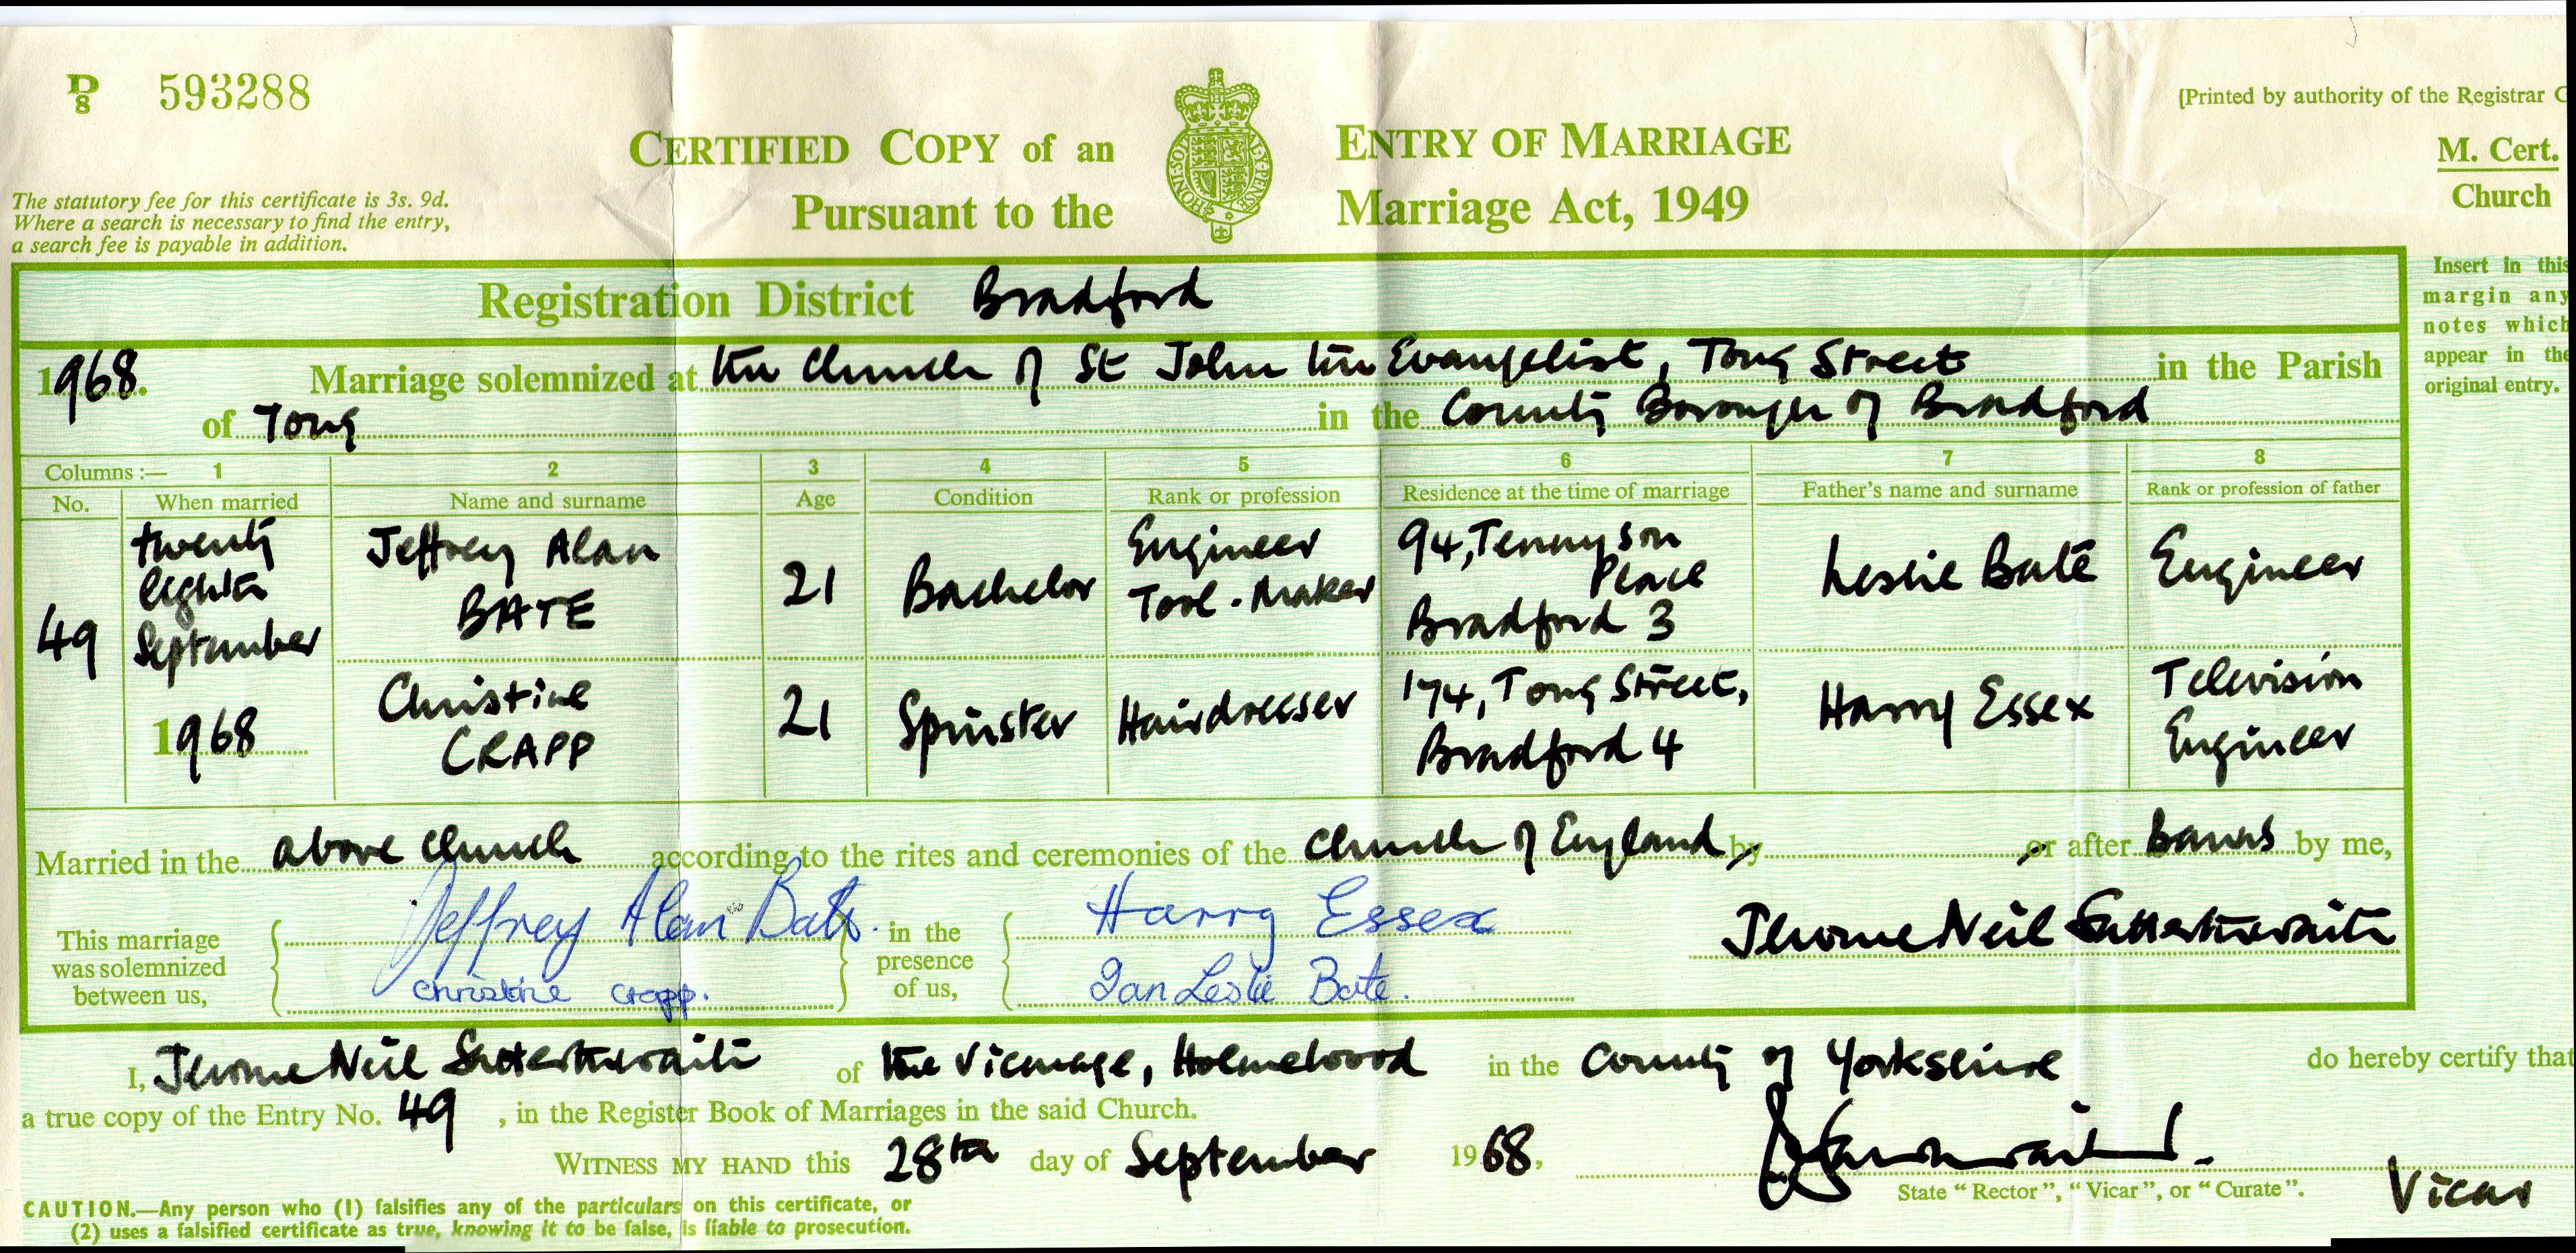 P 8 593288
[Printed by authority of the Registrar G
CERTIFIED COPY of an ENTRY OF MARRIAGE
M. Cert.
Church
Pursuant to the Marriage Act, 1949
HONI·SOIT MAL·Y·PENSE
The statutory fee for this certificate is 3s. 9d.
Where a search is necessary to find the entry,
a search fee is payable in addition.
Registration District Bradford
Insert in this
margin any
notes which
appear in the
original entry.
1968. Marriage solemnized at the Church of St John the Evangelist, Tong Street in the Parish
of Tong in the County Borough of Bradford
Columns :— 1 2 3 4 5 6 7 8
No. When married Name and surname Age Condition Rank or profession Residence at the time of marriage Father's name and surname Rank or profession of father
49
twenty
eighth
September
1968
Jeffrey Alan
BATE
21
Bachelor
Engineer
Tool-Maker
94, Tennyson
Place
Bradford 3
Leslie Bate
Engineer
Christine
CRAPP
21
Spinster
Hairdresser
174, Tong Street,
Bradford 4
Harry Essex
Television
Engineer
Married in the above church according to the rites and ceremonies of the Church of England by or after banns by me,
This marriage
was solemnized
between us,
Jeffrey Alan Bate.
Christine Crapp.
in the
presence
of us,
Harry Essex
Ian Leslie Bate.
Jerome Neil Satterthwaite
I, Jerome Neil Satterthwaite of the Vicarage, Holmewood in the County of Yorkshire do hereby certify that
a true copy of the Entry No. 49, in the Register Book of Marriages in the said Church.
WITNESS MY HAND this 28th day of September 1968,
State "Rector", "Vicar", or "Curate". Vicar
CAUTION.—Any person who (1) falsifies any of the particulars on this certificate, or
(2) uses a falsified certificate as true, knowing it to be false, is liable to prosecution.